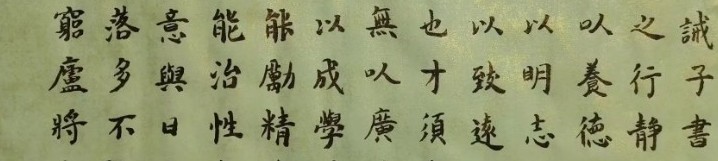 誡子書
之行静
以養德
以明志
以致遠
也才須
無以廣
以成學
能勵精
能治性
意與日
落多不
窮廬將